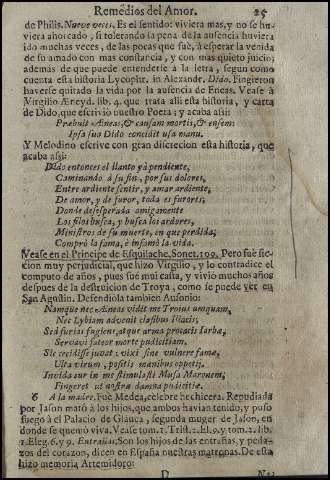 Remedios del Amor. 25
de Philis. Nueve veces. Es el sentido: viviera mas, y no se hu-
viera ahorcado, si tolerando la pena de la ausencia huviera
ido muchas veces, de las pocas que fuè, à esperar la venida
de su amado con mas constancia, y con mas quieto juicio;
además de que puede entenderse à la letra, segun como
cuenta esta historia Lycophr. in Alexandr. Dido. Fingieron
haverse quitado la vida por la ausencia de Eneas. Vease à
Virgilio Æneyd. lib. 4. que trata alli esta historia, y carta
de Dido, que escrivió nuestro Poeta; y acaba assi:
Præbuit Æneas, & causam mortis, & ensem:
Ipsa sua Dido concidit usa manu.
Y Melodino escrive con gran discrecion esta historia, que
acaba assi:
Dido entonces el llanto yà pendiente,
Caminando à su fin, por sus dolores,
Entre ardiente sentir, y amar ardiente,
De amor, y de furor, toda es furores;
Donde desesperada amigamente
Los filos busca, y busca los ardores,
Ministros de su muerte, en que perdida,
Comprò la fama, è infamò la vida.
Vease en el Principe de Esquilache, Sonet. 109. Pero fuè fic-
cion muy perjudicial, que hizo Virgilio, y lo contradice el
computo de años, pues fuè mui casta, y vivió muchos años
despues de la destruicion de Troya, como se puede ver en
San Agustin. Defendiola tambien Ausonio:
Namque nec Æneas vidit me Troius umquam,
Nec Lybiam advenit classibus Iliacis;
Sed furias fugiens, atque arma procacis Iarbæ,
Servavi fateor morte pudicitiam.
Sic cecidisse juvat: vixi sine vulnere famæ,
Ulta virum, positis mœnibus oppetii.
Invida cur in me stimulasti Musa Maronem,
Fingeret ut nostræ damna pudicitiæ.
6 A la madre. Fuè Medea, celebre hechicera. Repudiada
por Jason matò à los hijos, que ambos havian tenido, y puso
fuego à el Palacio de Glauca, segunda muger de Jason, en
donde se quemò viva. Vease tom. 1. Trist. 2. El. 9. y tom. 2. lib.
1. Eleg. 6. y 9. Entrañas. Son los hijos de las entrañas, y peda-
zos del corazon, dicen en España nuestras matronas. De esta
hizo memoria Artemidoro:
D